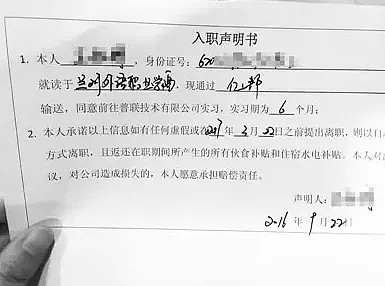 入职声明书
1. 本人，身份证号：620
就读于兰州外语职业学院，现通过
输送，同意前往普联技术有限公司实习，实习期为 6 个月；
2. 本人承诺以上信息如有任何虚假或在2017年 3 月 22日之前提出离职，则以自
方式离职，且返还在职期间所产生的所有伙食补贴和住宿水电补贴。本人对
议，对公司造成损失的，本人愿意承担赔偿责任。
声明人：
2016 年 9 月 22日